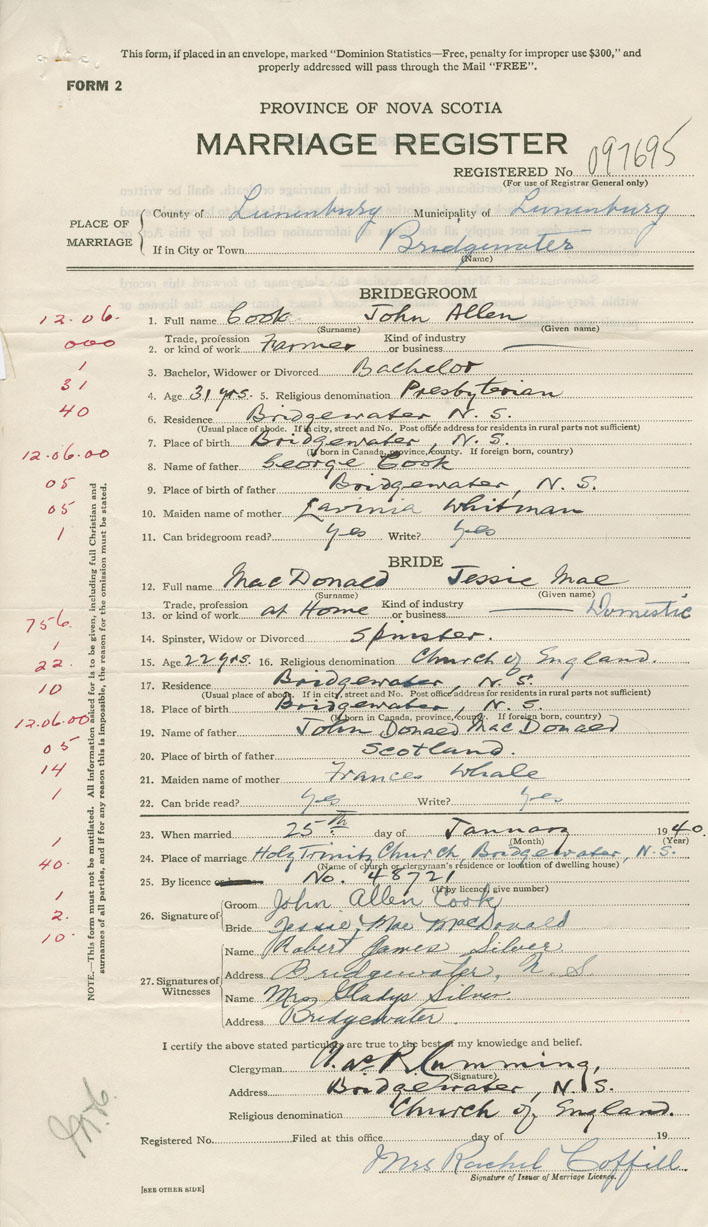 This form, if placed in an envelope, marked "Dominion Statistics—Free, penalty for improper use $300," and
properly addressed will pass through the Mail "FREE".
FORM 2
PROVINCE OF NOVA SCOTIA
MARRIAGE REGISTER
REGISTERED No. 097695
(For use of Registrar General only)
PLACE OF MARRIAGE
County of Lunenburg Municipality of Lunenburg
If in City or Town Bridgewater
(Name)
BRIDEGROOM
12.06. 1. Full name Cook John Allen
(Surname) (Given name)
000 2. Trade, profession or kind of work Farmer Kind of industry or business
1 3. Bachelor, Widower or Divorced Bachelor
31 4. Age 31 yrs. 5. Religious denomination Presbyterian
40 6. Residence Bridgewater N. S.
(Usual place of abode. If in city, street and No. Post office address for residents in rural parts not sufficient)
7. Place of birth Bridgewater, N. S.
(If born in Canada, province, county. If foreign born, country)
12.06.00 8. Name of father George Cook
05 9. Place of birth of father Bridgewater, N. S.
05 10. Maiden name of mother Lavinia Whitman
1 11. Can bridegroom read? Yes Write? Yes
BRIDE
12. Full name MacDonald Jessie Mae
(Surname) (Given name)
756. 13. Trade, profession or kind of work at Home Kind of industry or business Domestic
1 14. Spinster, Widow or Divorced Spinster.
22. 15. Age 22 yrs. 16. Religious denomination Church of England.
10 17. Residence Bridgewater, N. S.
(Usual place of abode. If in city, street and No. Post office address for residents in rural parts not sufficient)
12.06.00 18. Place of birth Bridgewater, N. S.
(If born in Canada, province, county. If foreign born, country)
19. Name of father John Donald MacDonald
05 20. Place of birth of father Scotland.
14 21. Maiden name of mother Frances Whale
1 22. Can bride read? Yes Write? Yes
1 23. When married 25th day of January 1940.
(Month) (Year)
40. 24. Place of marriage Holy Trinity Church, Bridgewater, N.S.
(Name of church or clergyman's residence or location of dwelling house)
25. By licence No. 48721
(If by licence, give number)
1 26. Signature of Groom John Allen Cook
2. Bride Jessie Mae MacDonald
10. 27. Signatures of Witnesses
Name Robert James Silver
Address Bridgewater, N. S.
Name Mrs Gladys Silver.
Address Bridgewater.
NOTE.—This form must not be mutilated. All information asked for is to be given, including full Christian and
surnames of all parties, and if for any reason this is impossible, the reason for the omission must be stated.
I certify the above stated particulars are true to the best of my knowledge and belief.
Clergyman Cumming,
(Signature)
Address Bridgewater, N. S.
Religious denomination Church of England.
Registered No. Filed at this office day of 19
Mrs Rachel Coffill
Signature of Issuer of Marriage Licence.
[SEE OTHER SIDE]